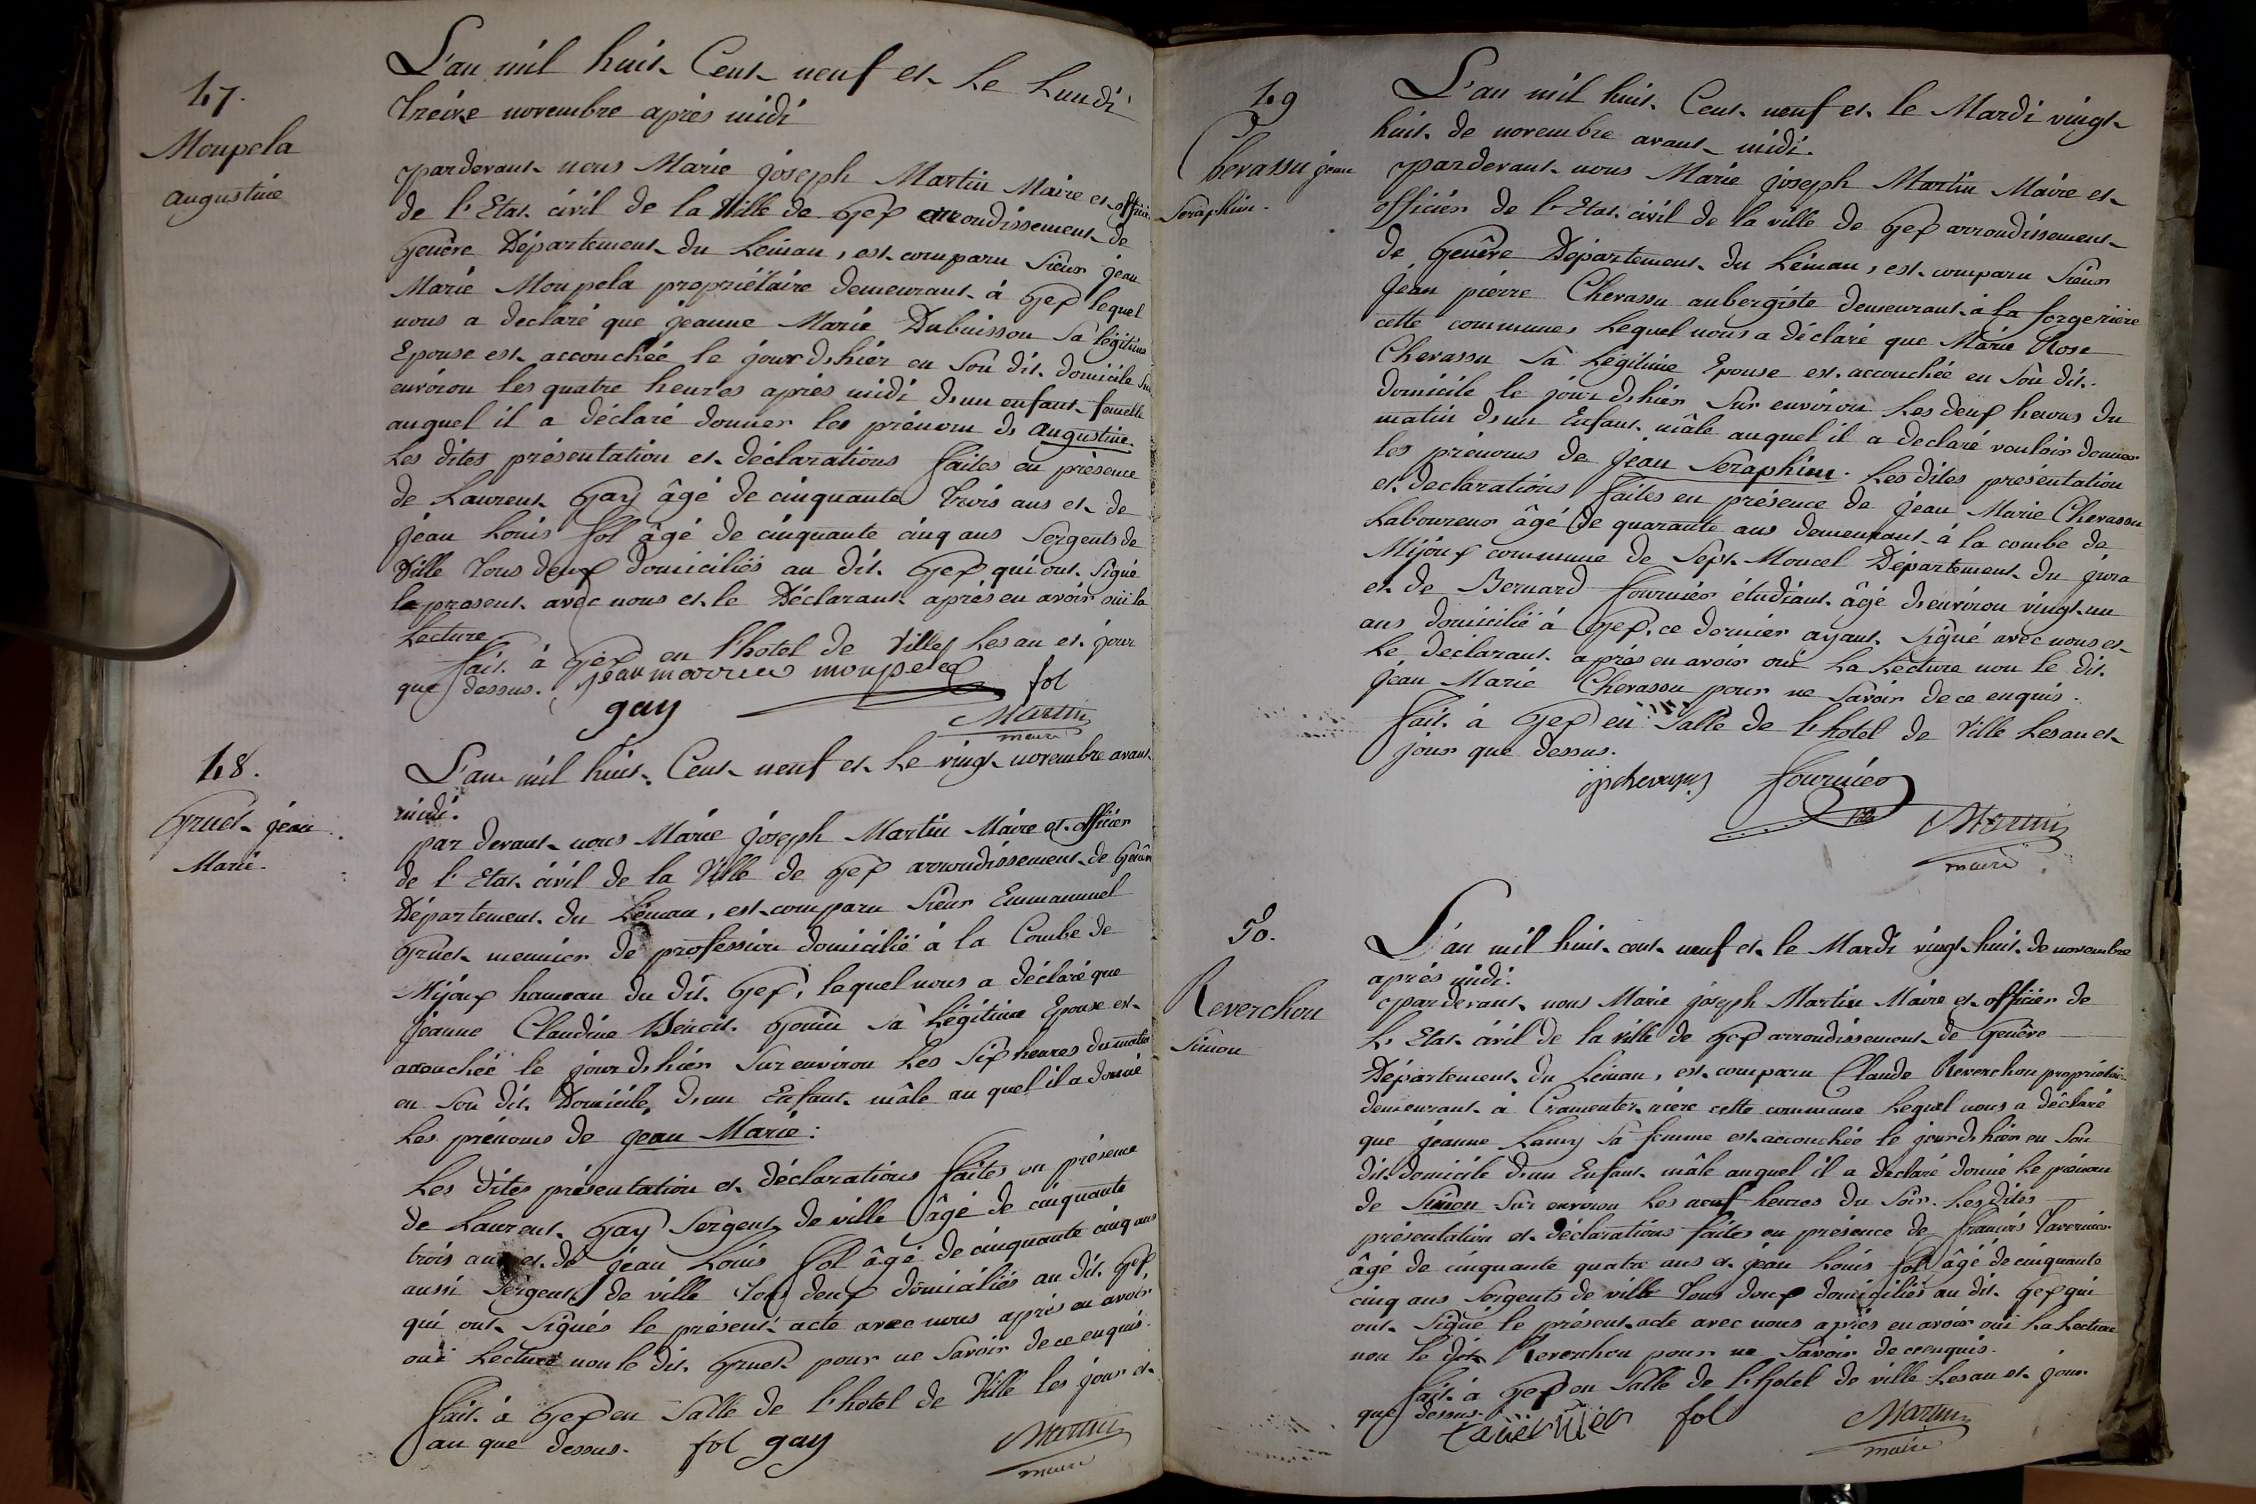 47.
Moupela
augustine
L'an mil huit Cent neuf et le Lundi
treize novembre après midi
pardevant nous Marie joseph Martin Maire et officier
de l'Etat civil de la Ville de Gex arrondissement de
Genève Département du Léman, est comparu Sieur jean
Marie Moupela propriétaire demeurant à Gex lequel
nous a declaré que jeanne Marie Dubuisson Sa légitime
Epouse est accouchée le jour d'hier en Son dit domicile Sur
environ les quatre heures après midi d'un enfant femelle
auquel il a déclaré donner les prénom de augustine.
Les dites présentation et déclarations faites en présence
de Laurent Gay âgé de cinquante trois ans et de
jean Louis fol âgé de cinquante cinq ans Sergents de
Ville tous deux domiciliés au dit Gex qui ont Signé
le present avec nous et le Déclarant après en avoir oui la
Lecture
fait à Gex en l'hotel de Ville Les an et jour
que dessus. jean marie moupela
fol
gay
Martin
maire
48.
Gruet jean
Marie.
L'an mil huit Cent neuf et Le vingt novembre avant
midi.
par devant nous Marie joseph Martin Maire et officier
de l'Etat civil de la Ville de Gex arrondissement de Genève
Département du Léman, est comparu Sieur Emmanuel
Gruet meunier de profession domicilié à la Combe de
Mijoux hameau du dit Gex, lequel nous a déclaré que
jeanne Claudine Benoit Gonin Sa Légitime Epouse est
accouchée le jour d'hier Sur environ Les Six heures du matin
en Son dit Domicile, d'un Enfant mâle au quel il a donné
Les prénoms de jean Marie:
Les dites présentation et déclarations faites en présence
de Laurent Gay Sergent de ville âgé de cinquante
trois ans et de jean Louis fol âgé de cinquante cinq ans
aussi Sergent de ville tous deux domiciliés au dit Gex,
qui ont Signés le présent acte avec nous après en avoir
oui Lecture non le dit Gruet pour ne Savoir de ce enquis.
fait à Gex en Salle de l'hotel de Ville les jour et
an que dessus. fol gay
Martin
maire
49
Chevassu jean
Seraphin.
L'an mil huit Cent neuf et le Mardi vingt
huit de novembre avant midi.
pardevant nous Marie joseph Martin Maire et
officier de l'Etat civil de la ville de Gex arrondissement
de Genêve Département du Léman, est comparu Sieur
jean pierre Chevassu aubergiste demeurant à la forgeriere
cette commune, Lequel nous a déclaré que Marie Rose
Chevassu Sa Légitime Epouse est accouchée en Son dit
domicile le jour d'hier Sur environ Les deux heures du
matin d'un Enfant mâle auquel il a declaré vouloir donner
les prénoms de jean Seraphin. Les dites présentation
et declarations faites en présence de jean Marie Chevassu
Laboureur âgé de quarante ans demeurant à la combe de
Mijoux commune de Sept Moncel Département du jura
et de Bernard fournier étudiant âgé d'environ vingt un
ans domicilié à Gex, ce dernier ayant Signé avec nous et
Le déclarant après en avoir oui La Lecture non le dit
jean Marie Chevassu pour ne Savoir de ce enquis.
fait à Gex en Salle de l'hotel de Ville Les an et
jour que dessus.
jpchevassu
fournier
Martin
maire
50.
Reverchon
Simon
L'an mil huit cent neuf et le Mardi vingt huit de novembre
après midi.
pardevant nous Marie joseph Martin Maire et officier de
L'Etat civil de la ville de Gex arrondissement de Genêve
Département du Léman, est comparu Claude Reverchon propriétaire
demeurant à cette commune Lequel nous a déclaré
que jeanne Lamy Sa femme est accouchée le jour d'hier en Son
dit domicile d'un Enfant mâle auquel il a déclaré donné Le prénom
de Simon Sur environ Les neuf heures du Soir. Les dites
présentation et déclarations faites en présence de françois Tavernier
âgé de cinquante quatre ans et jean Louis fol âgé de cinquante
cinq ans Sergents de ville tous deux domiciliés au dit Gex qui
ont Signé le présent acte avec nous après en avoir oui La Lecture
non le dit Reverchon pour ne Savoir de ce enquis.
fait à Gex en Salle de l'hotel de ville Les an et jour
que dessus.
tavernier
fol
Martin
maire